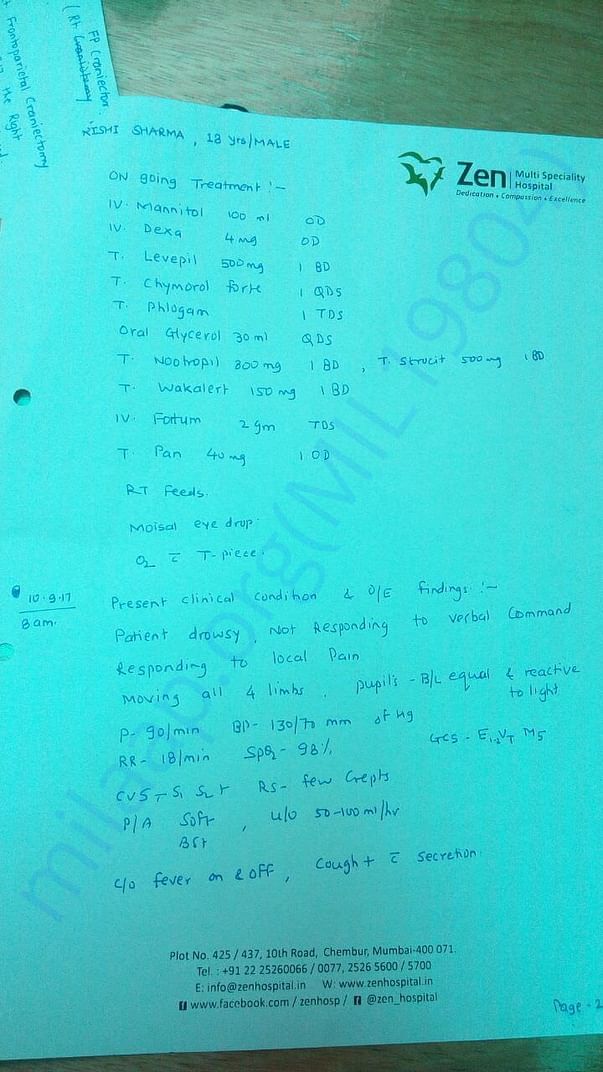 FP Craniectomy
(Rt Craniectomy
Frontoparietal Craniectomy
the Right
RISHI SHARMA, 18 yrs/MALE
Zen Multi Speciality Hospital
Dedication • Compassion • Excellence
ON going Treatment :-
IV. Mannitol 100 ml OD
IV. Dexa 4mg OD
T. Levepil 500mg 1 BD
T. Chymorol forte 1 QDS
T. Phlogam 1 TDS
Oral Glycerol 30ml QDS
T. Nootropil 800mg 1 BD, T. Strocit 500mg 1 BD
T. Wakalert 150mg 1 BD
IV. Fortum 2gm TDS
T. Pan 40mg 1 OD
RT Feeds.
Moisal eye drop.
O2 c̄ T-piece.
10.9.17
8am.
Present clinical condition & O/E findings :-
Patient drowsy, Not Responding to verbal Command
Responding to local Pain
Moving all 4 limbs. pupil's - B/L equal & reactive to light
P- 90/min BP- 130/70 mm of Hg
RR- 18/min SpO2- 98% GCS - E1-2 VT M5
CVS - S1 S2 + RS- few Crepts
P/A Soft, U/O 50-100ml/hr
BS+
C/o fever on & off, Cough + c̄ secretion.
Plot No. 425 / 437, 10th Road, Chembur, Mumbai-400 071.
Tel. : +91 22 25260066 / 0077, 2526 5600 / 5700
E: info@zenhospital.in W: www.zenhospital.in
www.facebook.com / zenhosp / @zen_hospital
Page - 2
milaap.org(MIL19804)